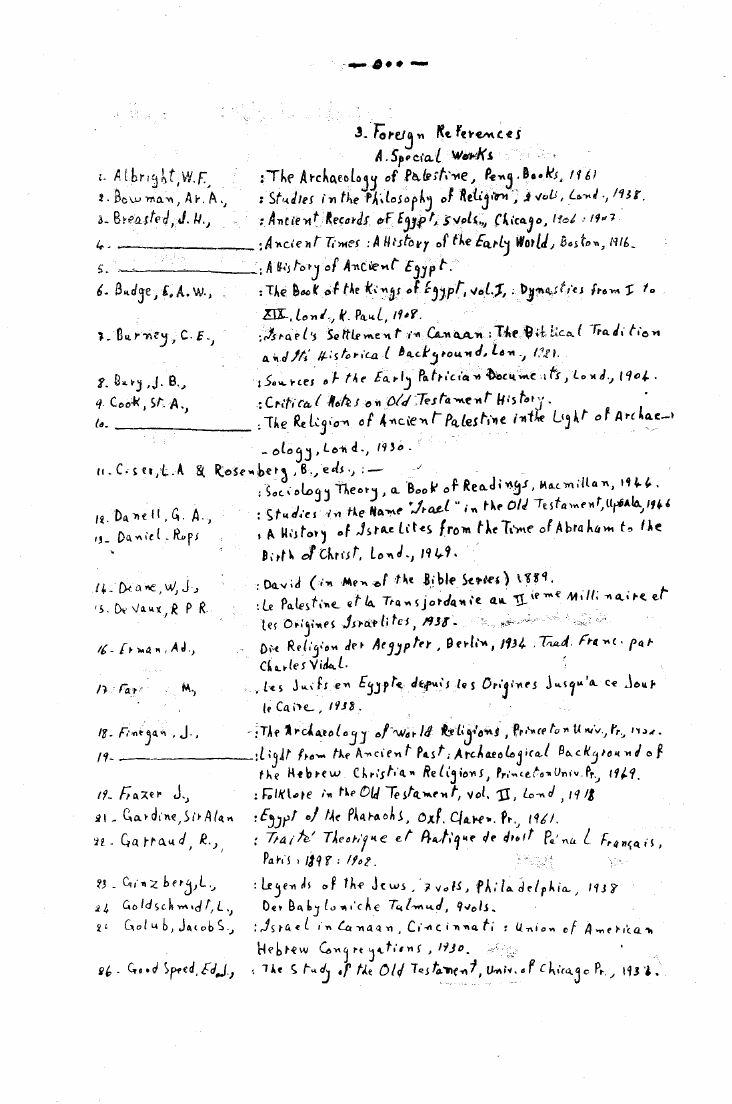 — ٥٠٠ —
3. Foreign References
A. Special Works
1. Albright, W.F., : The Archaeology of Palestine, Peng. Books, 1961
2. Bowman, Ar. A., : Studies in the Philosophy of Religion, 2 vols, Lond., 1938.
3. Breasted, J. H., : Ancient Records of Egypt, 5 vols., Chicago, 1906 : 1907
4. ____________ : Ancient Times : A History of the Early World, Boston, 1916.
5. ____________ : A History of Ancient Egypt.
6. Budge, E. A. W., : The Book of the Kings of Egypt, vol. I, : Dynasties from I to
XIX, Lond., K. Paul, 1908.
7. Burney, C. E., : Israel's Settlement in Canaan : The Biblical Tradition
and Its Historical Background, Lon.,
8. Bury, J. B., : Sources of the Early Patrician Documents, Lond., 1904.
9. Cook, St. A., : Critical Notes on Old Testament History.
10. ____________ : The Religion of Ancient Palestine in the Light of Archae-
- ology, Lond., 1930.
11. L.A & Rosenberg, B., eds., : —
: Sociology Theory, a Book of Readings, Macmillan, 1946.
12. Danell, G. A., : Studies in the Name "Israel" in the Old Testament, Upsala, 1946
13. Daniel. Rops : A History of Israelites from the Time of Abraham to the
Birth of Christ, Lond., 1949.
14. Deane, W. J., : David (in Men of the Bible Series) 1889.
15. De Vaux, R P R. : Le Palestine et la Transjordanie au II ieme Millinaire et
les Origines Israelites, 1938.
16. Erman, Ad., Die Religion der Aegypter, Berlin, 1934. Trad. Franc. par
Charles Vidal.
17 M., . Les Juifs en Egypte depuis les Origines Jusqu'a ce Jour
le Caire, 1938.
18. Finegan, J., : The Archaeology of World Religions, Princeton Univ. Pr.,
19. ____________ : Light from the Ancient Past : Archaeological Background of
the Hebrew Christian Religions, Princeton Univ. Pr., 1949.
19. Frazer J., : Folklore in the Old Testament, vol. II, Lond, 1918
21. Gardine, Sir Alan : Egypt of the Pharaohs, Oxf. Claren. Pr., 1961.
22. Garraud, R., : Traité Theorique et Pratique de droit Pénal Français,
Paris, 1898 : 1902.
23. Ginzberg, L., : Legends of the Jews, 7 vols, Philadelphia, 1938
24 Goldschmidt, L., Der Babyloniche Talmud, 9 vols.
Golub, Jacob S., : Israel in Canaan, Cincinnati : Union of American
Hebrew Congregations, 1930.
26. Good Speed, Ed. J., : The Study of the Old Testament, Univ. of Chicago Pr.,